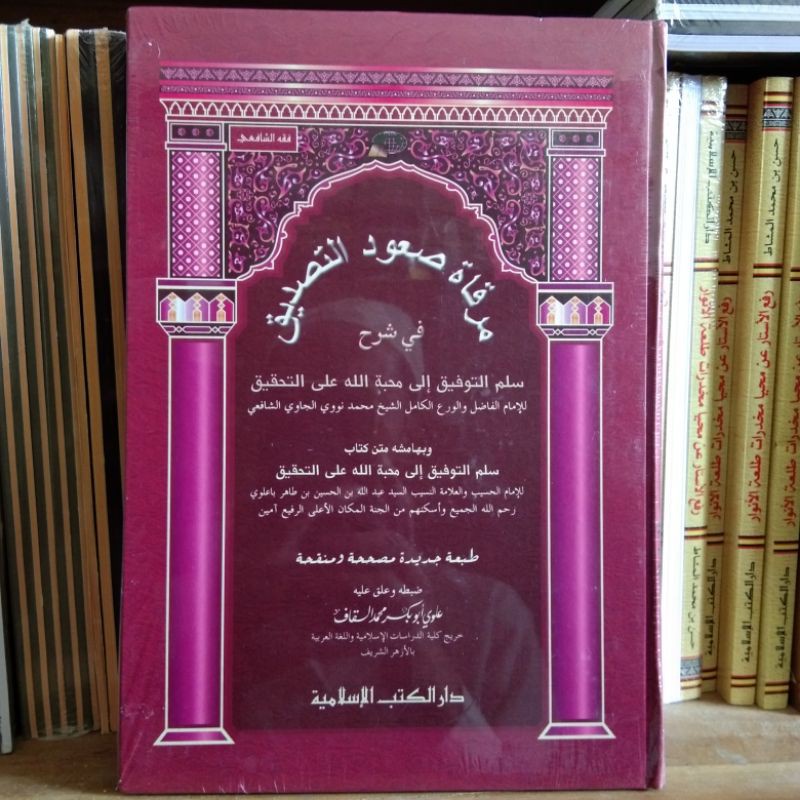 فقه الشافعي
مرقاة صعود التصديق
في شرح
سلم التوفيق إلى محبة الله على التحقيق
للإمام الفاضل والورع الكامل الشيخ محمد نووي الجاوي الشافعي
وبهامشه متن كتاب
سلم التوفيق إلى محبة الله على التحقيق
للإمام الحسيب والعلامة النسيب السيد عبد الله بن الحسين بن طاهر باعلوي
رحم الله الجميع وأسكنهم من الجنة المكان الأعلى الرفيع آمين
طبعة جديدة مصححة ومنقحة
ضبطه وعلق عليه
علوي أبو بكر محمد السقاف
خريج كلية الدراسات الإسلامية واللغة العربية
بالأزهر الشريف
دار الكتب الإسلامية
دار الكتب الإسلامية
رفع الأستار عن محيا مخدرات طلعة الأنوار
حسن بن محمد المشاط
حسن بن محمد المشاط
رفع الأستار عن محيا مخدرات طلعة الأنوار
دار الكتب الإسلامية
حسن بن محمد المشاط
رفع الأستار عن محيا مخدرات طلعة الأنوار
دار الكتب الإسلامية